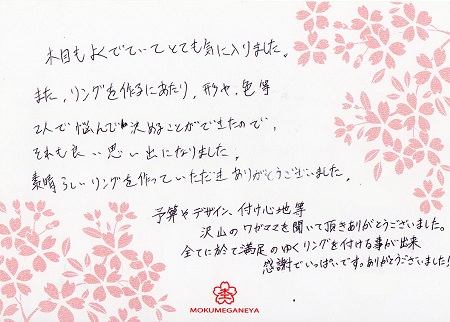 木目もよくでていてとても気に入りました。
また、リングを作るにあたり、形や、色等
2人で悩んで決めることができたので、
それも良い思い出になりました。
素晴らしいリングを作っていただきありがとうございました。
予算やデザイン、付け心地等
沢山のワガママを聞いて頂きありがとうございました。
全てに於て満足のゆくリングを付ける事が出来
感謝でいっぱいです。ありがとうございました!
MOKUMEGANEYA